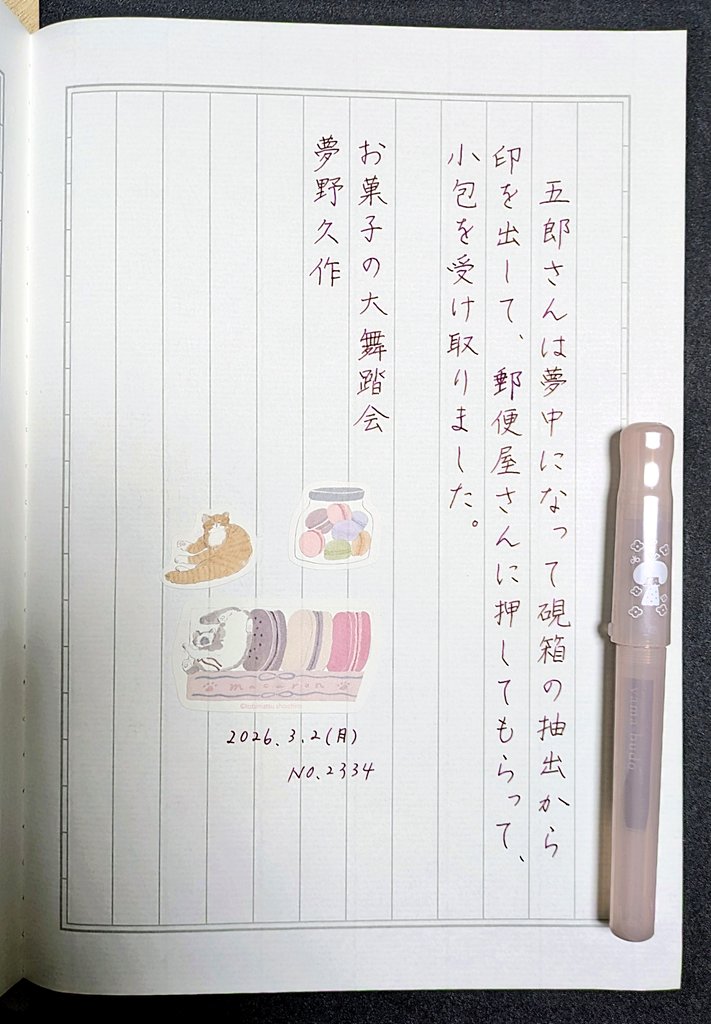 五郎さんは夢中になって硯箱の抽出から
印を出して、郵便屋さんに押してもらって、
小包を受け取りました。
お菓子の大舞踏会
夢野久作
macaron
2026.3.2(月)
NO.2334